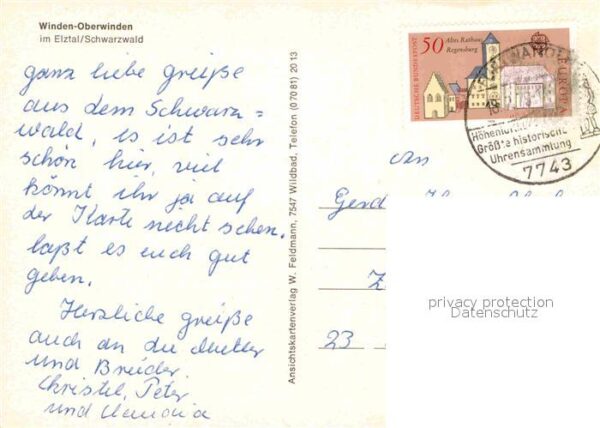 Winden-Oberwinden
im Elztal/Schwarzwald
ganz liebe greiße
aus dem Schwarz=
wald, es ist sehr
schön hier, viel
könnt ihr ja auf
der Karte nicht sehen.
laßt es euch gut
geben.
Herzliche greiße
auch an die Mutter
und Brüder
Christel, Peter
und Claudia
Ansichtskartenverlag W. Feldmann, 7547 Wildbad, Telefon (0 70 81) 20 13
50 Altes Rathaus
Regensburg
DEUTSCHE BUNDESPOST
EUROPA
Größte historische
Uhrensammlung
7743
An
23
privacy protection
Datenschutz